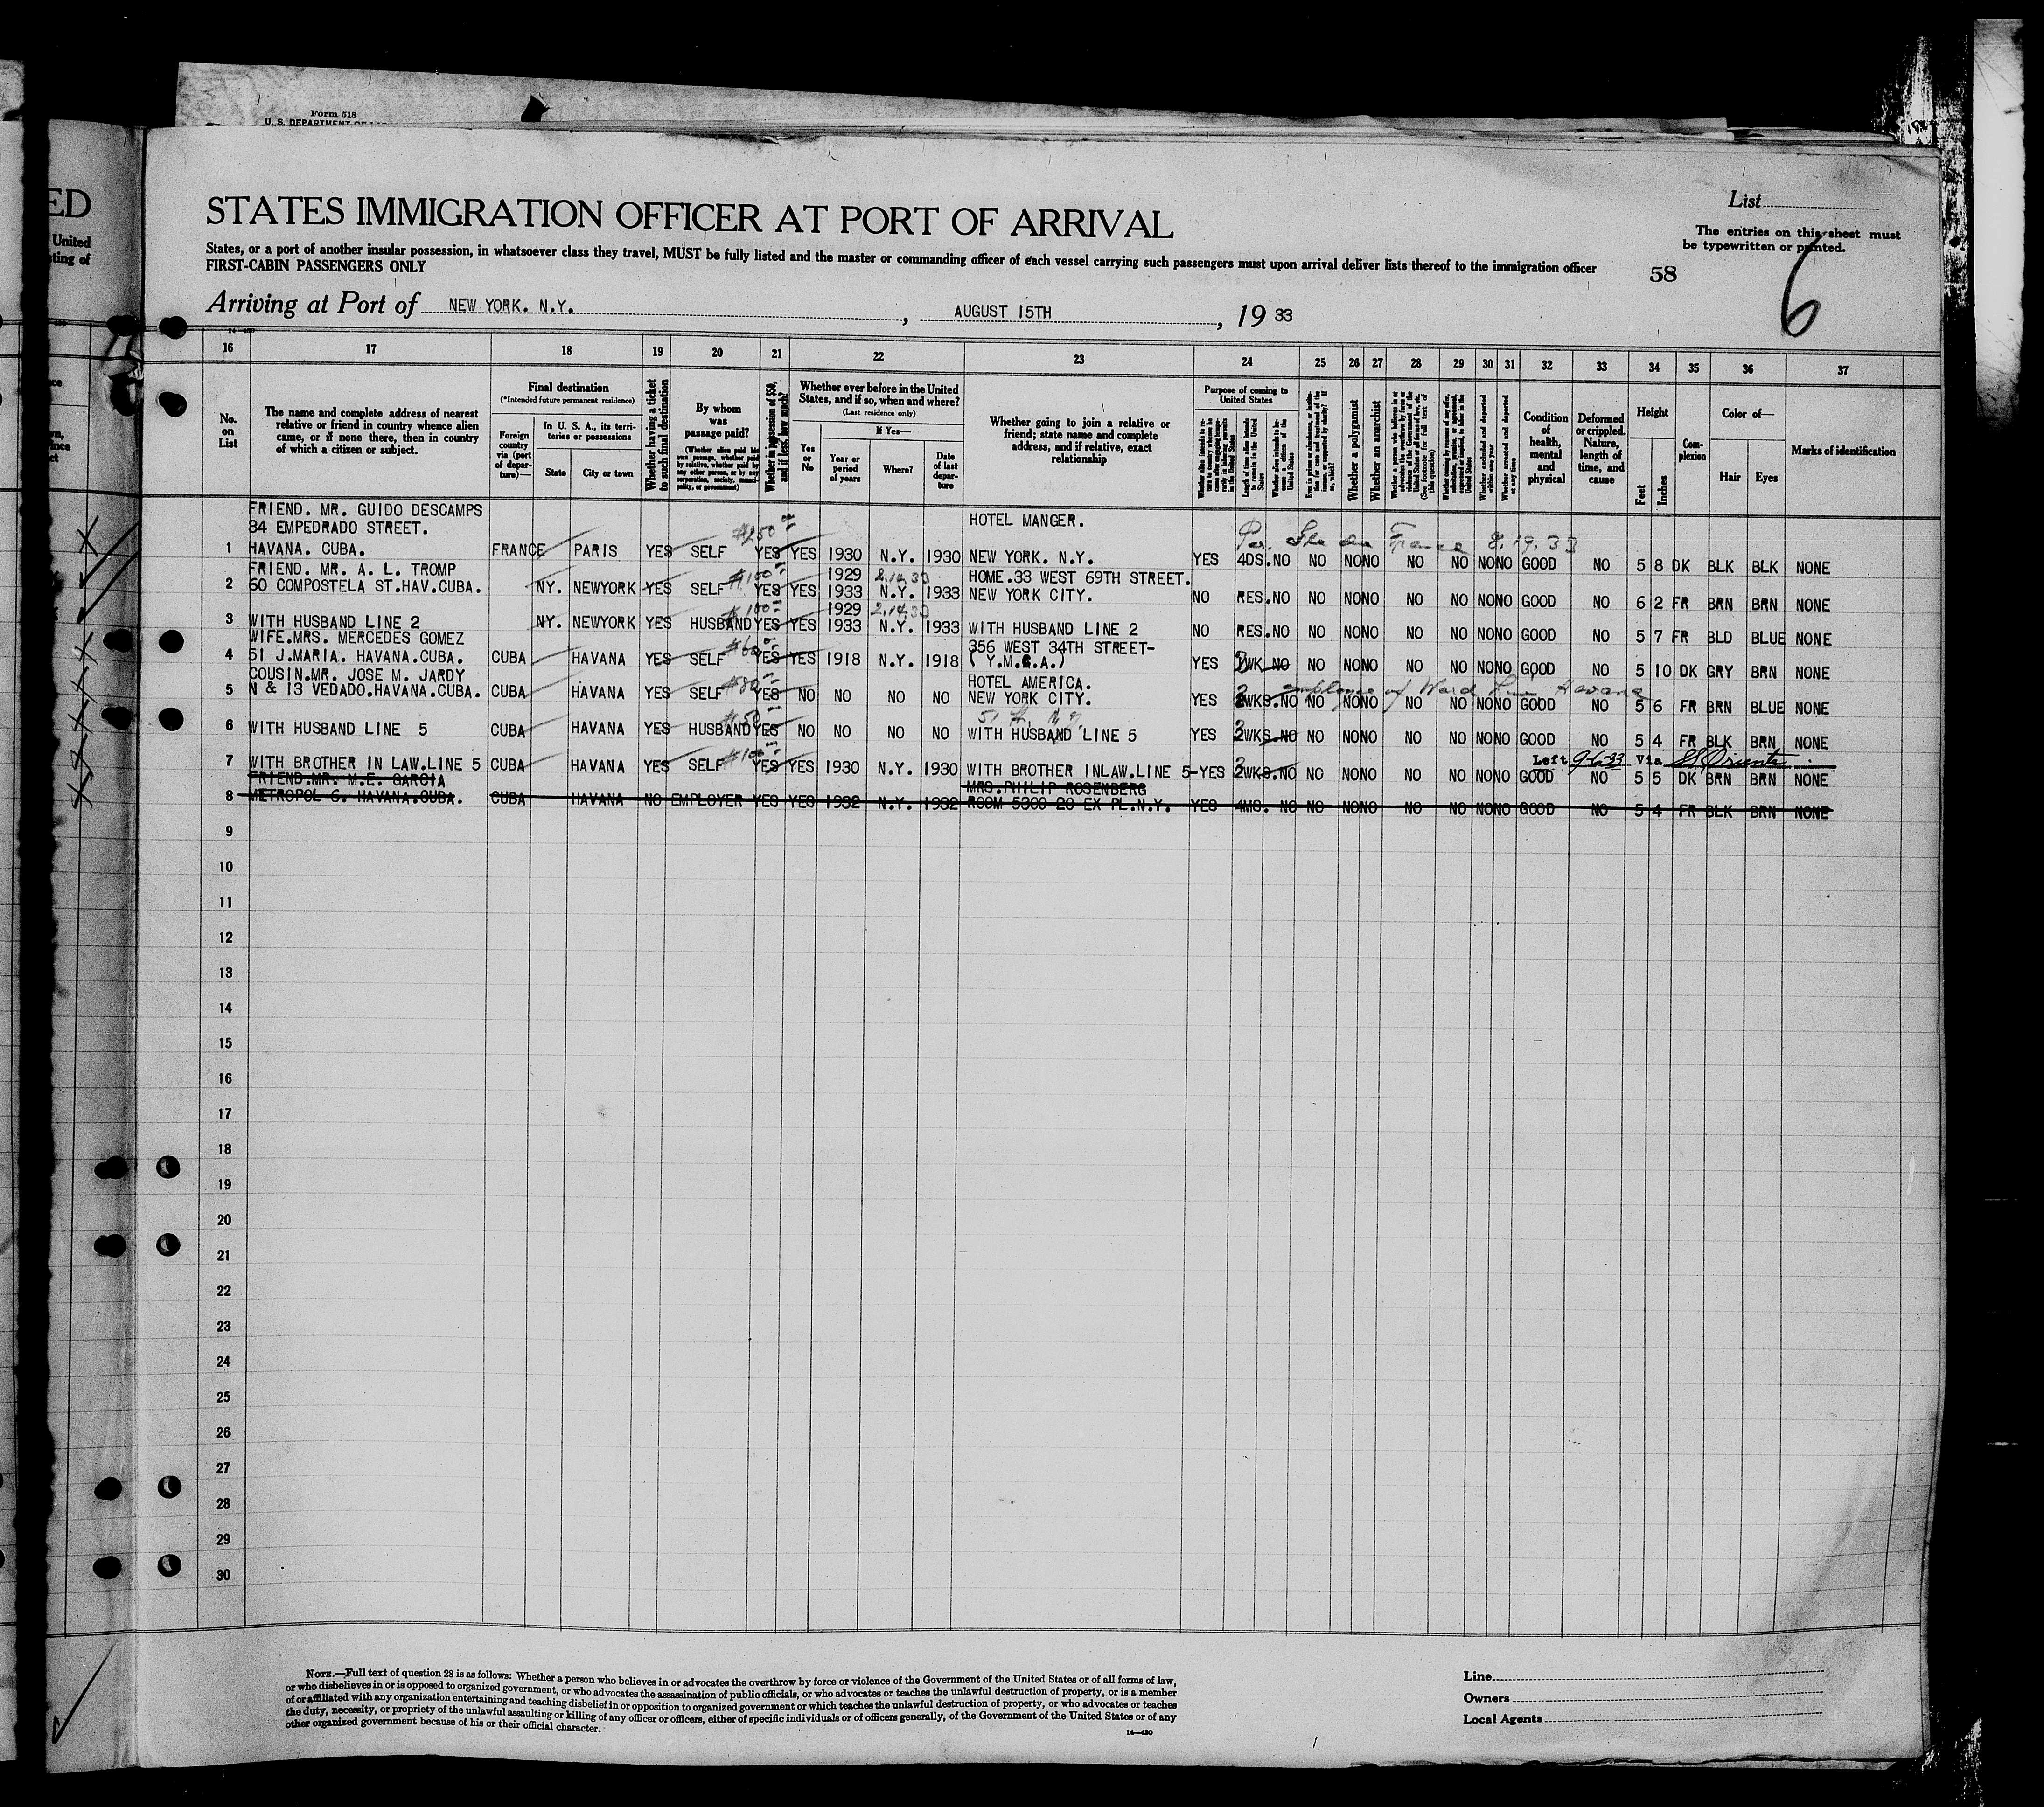 Form 518
U. S. DEPARTMENT OF
ED
United
STATES IMMIGRATION OFFICER AT PORT OF ARRIVAL
List
The entries on this sheet must
be typewritten or printed.
States, or a port of another insular possession, in whatsoever class they travel, MUST be fully listed and the master or commanding officer of each vessel carrying such passengers must upon arrival deliver lists thereof to the immigration officer
FIRST-CABIN PASSENGERS ONLY
58
6
Arriving at Port of NEW YORK. N.Y. , AUGUST 15TH , 19 33
16 17 18 19 20 21 22 23 24 25 26 27 28 29 30 31 32 33 34 35 36 37
No. on List
The name and complete address of nearest relative or friend in country whence alien came, or if none there, then in country of which a citizen or subject.
Final destination
(*Intended future permanent residence)
Foreign country via (port of departure)—
In U. S. A., its territories or possessions
State
City or town
Whether having a ticket to such final destination
By whom was passage paid?
(Whether alien paid his own passage, whether paid by relative, whether paid by any other person, or by any corporation, society, municipality, or government)
Whether in possession of $50, and if less, how much?
Whether ever before in the United States, and if so, when and where?
(Last residence only)
Yes or No
If Yes—
Year or period of years
Where?
Date of last departure
Whether going to join a relative or friend; state name and complete address, and if relative, exact relationship
Purpose of coming to United States
Length of time alien intends to remain in the United States
Whether a polygamist
Whether an anarchist
Whether excluded and deported within one year
Whether arrested and deported at any time
Condition of health, mental and physical
Deformed or crippled. Nature, length of time, and cause
Height
Feet
Inches
Complexion
Color of—
Hair
Eyes
Marks of identification
FRIEND. MR. GUIDO DESCAMPS
34 EMPEDRADO STREET. $250 HOTEL MANGER.
8.19.33
1 HAVANA. CUBA. FRANCE PARIS YES SELF YES YES 1930 N.Y. 1930 NEW YORK. N.Y. YES 4DS. NO NO NO NO NO NO NO NO GOOD NO 5 8 DK BLK BLK NONE
FRIEND. MR. A. L. TROMP $100 1929 HOME.33 WEST 69TH STREET.
2 60 COMPOSTELA ST.HAV.CUBA. NY. NEWYORK YES SELF YES YES 1933 N.Y. 1933 NEW YORK CITY. NO RES. NO NO NO NO NO NO NO NO GOOD NO 6 2 FR BRN BRN NONE
$100 1929 2.14.33
3 WITH HUSBAND LINE 2 NY. NEWYORK YES HUSBAND YES YES 1933 N.Y. 1933 WITH HUSBAND LINE 2 NO RES. NO NO NO NO NO NO NO NO GOOD NO 5 7 FR BLD BLUE NONE
WIFE.MRS. MERCEDES GOMEZ $60 356 WEST 34TH STREET-
4 51 J.MARIA. HAVANA.CUBA. CUBA HAVANA YES SELF YES YES 1918 N.Y. 1918 ( Y.M.C.A.) YES WK NO NO NO NO NO NO NO NO GOOD NO 5 10 DK GRY BRN NONE
COUSIN.MR. JOSE M. JARDY $80 HOTEL AMERICA. employee of Ward Line Havana
5 N & 13 VEDADO.HAVANA.CUBA. CUBA HAVANA YES SELF YES NO NO NO NO NEW YORK CITY. YES 2WKS. NO NO NO NO NO NO NO NO GOOD NO 5 6 FR BRN BLUE NONE
$50
6 WITH HUSBAND LINE 5 CUBA HAVANA YES HUSBAND YES NO NO NO NO WITH HUSBAND LINE 5 YES 2WKS. NO NO NO NO NO NO NO NO GOOD NO 5 4 FR BLK BRN NONE
$100 Left 9-6-33 Via SS Oriente
7 WITH BROTHER IN LAW.LINE 5 CUBA HAVANA YES SELF YES YES 1930 N.Y. 1930 WITH BROTHER INLAW.LINE 5- YES 2WKS. NO NO NO NO NO NO NO NO GOOD NO 5 5 DK BRN BRN NONE
FRIEND.MR. M.E. GARCIA MRS.PHILIP ROSENBERG
8 METROPOL C. HAVANA.CUBA. CUBA HAVANA NO EMPLOYER YES YES 1932 N.Y. 1932 ROOM 5300 20 EX PL.N.Y. YES 4MS. NO NO NO NO NO NO NO NO GOOD NO 5 4 FR BLK BRN NONE
9
10
11
12
13
14
15
16
17
18
19
20
21
22
23
24
25
26
27
28
29
30
NOTE.—Full text of question 28 is as follows: Whether a person who believes in or advocates the overthrow by force or violence of the Government of the United States or of all forms of law,
or who disbelieves in or is opposed to organized government, or who advocates the assassination of public officials, or who advocates or teaches the unlawful destruction of property, or is a member
of or affiliated with any organization entertaining and teaching disbelief in or opposition to organized government or which teaches the unlawful destruction of property, or who advocates or teaches
the duty, necessity, or propriety of the unlawful assaulting or killing of any officer or officers, either of specific individuals or of officers generally, of the Government of the United States or of any
other organized government because of his or their official character.
14—430
Line
Owners
Local Agents